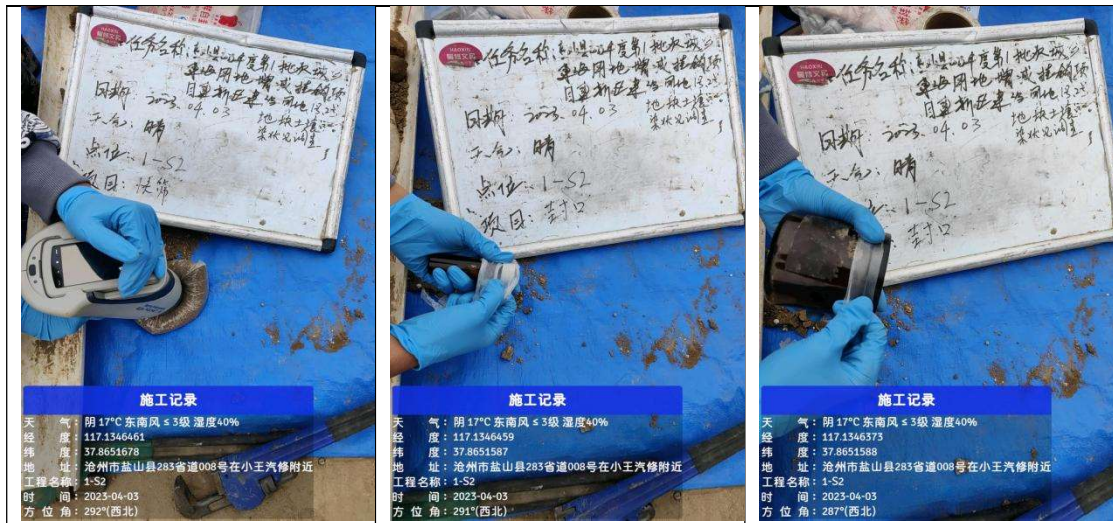 HAOXIU
任务名称:
建设用地增减挂钩项
目拆旧建
地块土壤污
染状况调查
日期: 2023.04.03
天气: 晴
点位: 1-S2
项目: 快筛
施工记录
天 气: 阴 17°C 东南风 ≤ 3级 湿度40%
经 度: 117.1346461
纬 度: 37.8651678
地 址: 沧州市盐山县283省道008号在小王汽修附近
工程名称: 1-S2
时 间: 2023-04-03
方 位 角: 292°(西北)
HAOXIU
任务名称:
建设用地增减挂钩项
目拆旧建
地块土壤污
染状况调查
日期: 2023.04.03
天气: 晴
点位: 1-S2
项目: 封口
施工记录
天 气: 阴 17°C 东南风 ≤ 3级 湿度40%
经 度: 117.1346459
纬 度: 37.8651587
地 址: 沧州市盐山县283省道008号在小王汽修附近
工程名称: 1-S2
时 间: 2023-04-03
方 位 角: 291°(西北)
HAOXIU
任务名称:
建设用地增减挂钩项
目拆旧建
地块土壤污
染状况调查
日期: 2023.04.03
天气: 晴
1-S2
封口
施工记录
天 气: 阴 17°C 东南风 ≤ 3级 湿度40%
经 度: 117.1346373
纬 度: 37.8651588
地 址: 沧州市盐山县283省道008号在小王汽修附近
工程名称: 1-S2
时 间: 2023-04-03
方 位 角: 287°(西北)